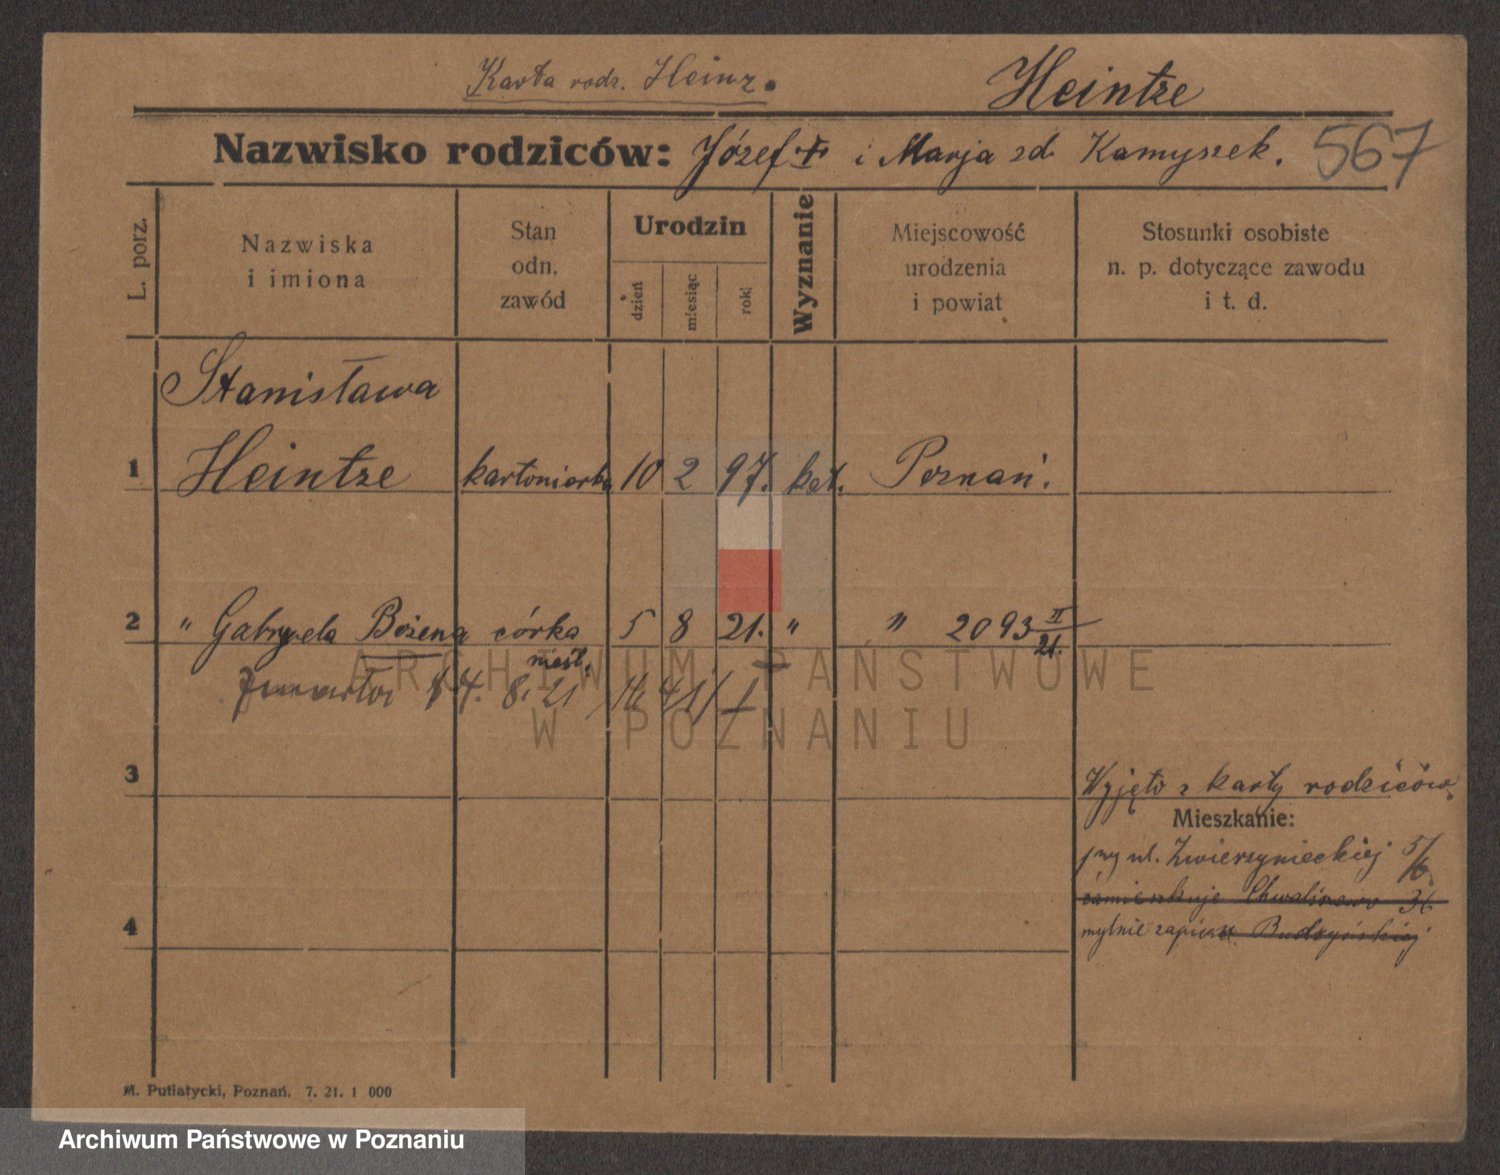 Karta rodz. Heinz.
Heintze
Nazwisko rodziców: Józef † i Marja zd. Kamyszek.
567
L. porz.
Nazwiska
i imiona
Stan
odn.
zawód
Urodzin
dzień
miesiąc
rok
Wyznanie
Miejscowość
urodzenia
i powiat
Stosunki osobiste
n. p. dotyczące zawodu
i t. d.
Stanisława
1 Heintze kartoniarka 10 2 97. kat. Poznań.
2 " Gabryela Bożena córka 5 8 21. " " 2093 II/21.
nieśl.
4. 8. 21
3
Wyjęto z karty rodziców
Mieszkanie:
przy ul. Zwierzynieckiej
zamieszkuje Chwaliszewo 36
mylnie zapisane Budzyńskiej
4
M. Putiatycki, Poznań. 7. 21. 1 000
ARCHIWUM PAŃSTWOWE
W POZNANIU
Archiwum Państwowe w Poznaniu